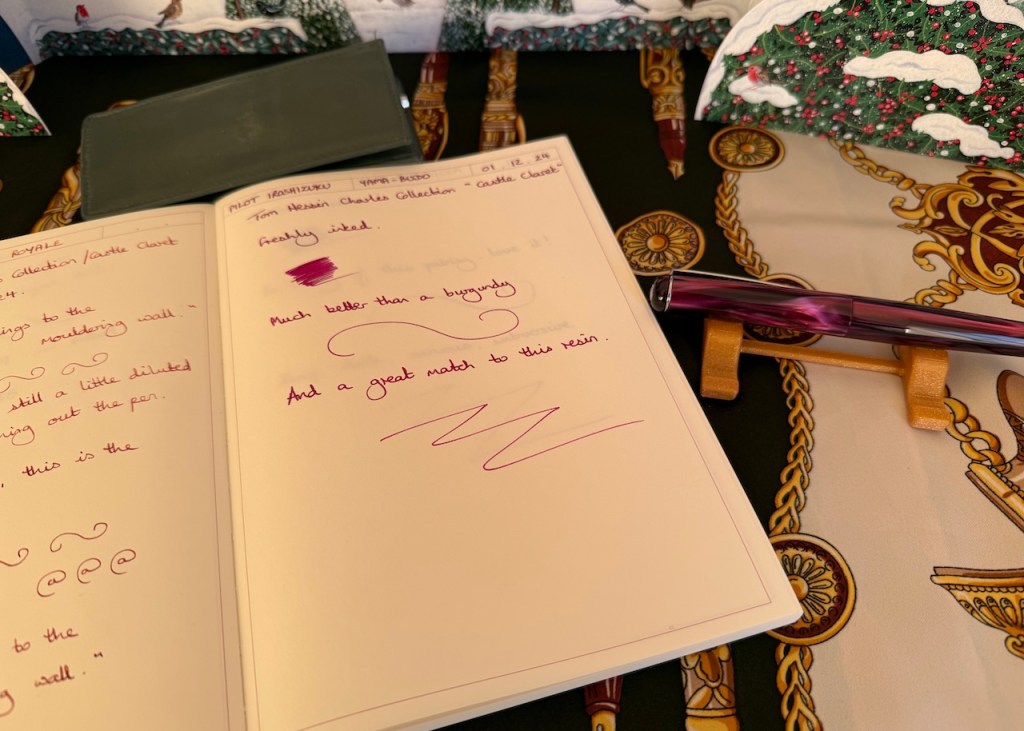 ROYALE
Collection / Castle Claret
24.
to the
mouldering wall."
still a little diluted
out the pen.
, this is the
to the
wall."
PILOT IROSHIZUKU YAMA-BUDO 01.12.24
Tom Hessin Charles Collection "Castle Claret"
Freshly inked.
Much better than a burgundy
And a great match to this resin.